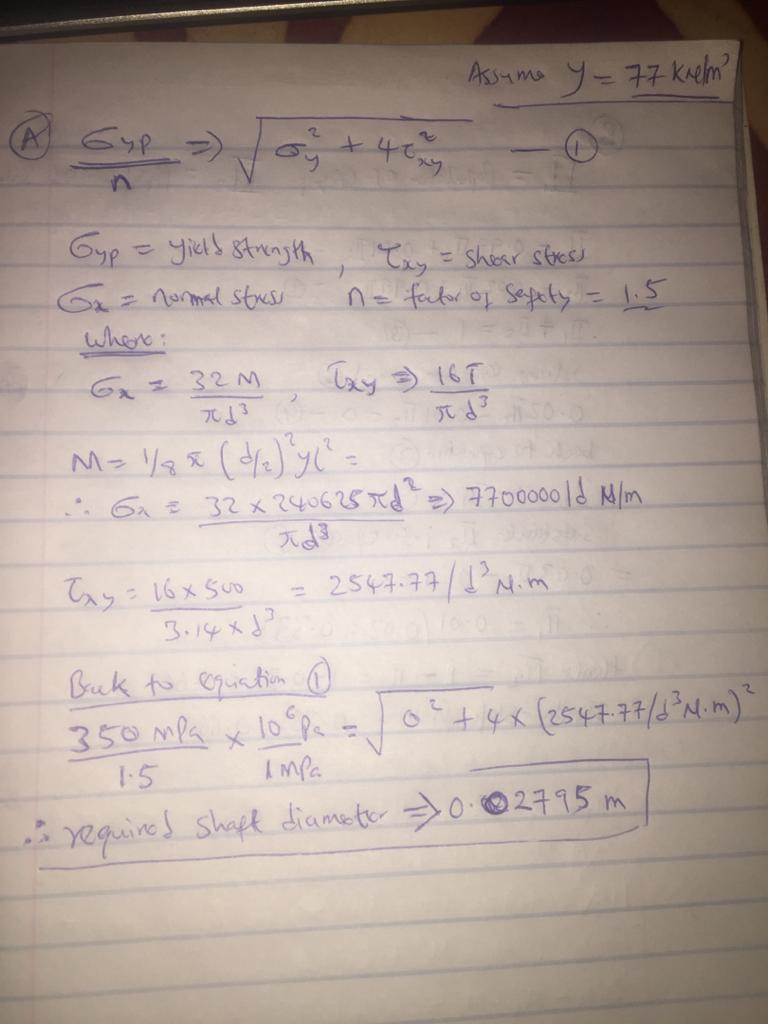 Assume y = 77 KN/m³
(A) σyp/n => √(σy² + 4τxy²) — (1)
σyp = yield strength, τxy = shear stress
σx = normal stress n = factor of safety = 1.5
where:
σx = 32M/πd³, τxy => 16T/πd³
M = 1/8 π (d/2)² yl² =
∴ σx = 32 × 240625πd²/πd³ => 7700000/d N/m
τxy = 16 × 500/3.14 × d³ = 2547.77/d³ N.m
Back to equation (1)
350 mPa/1.5 × 10⁶ Pa/1 mPa = √(0² + 4 × (2547.77/d³ N.m)²
∴ required shaft diameter => 0.02795 m